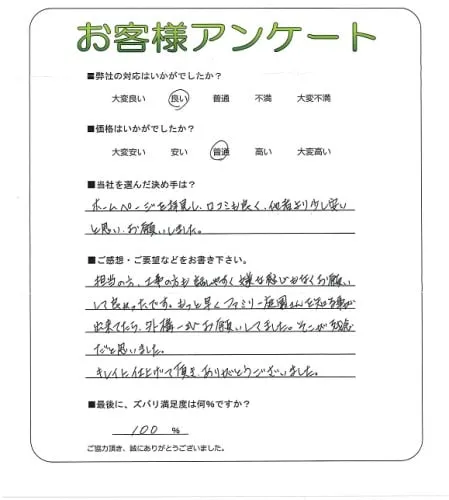 お客様アンケート
■弊社の対応はいかがでしたか？
大変良い 良い 普通 不満 大変不満
■価格はいかがでしたか？
大変安い 安い 普通 高い 大変高い
■当社を選んだ決め手は？
ホームページを拝見し、口コミも良く、他者より少し安い
と思い、お願いしました。
■ご感想・ご要望などをお書き下さい。
担当の方、工事の方も話しやすく、嫌な思いもなくお願い
して良かったです。もっと早くファミリー庭園さんを知る事が
出来てたら、外構一式お願いしてました。そこが残念
だと思いました。
キレイに仕上げて頂き、ありがとうございました。
■最後に、ズバリ満足度は何%ですか？
100 %
ご協力頂き、誠にありがとうございました。